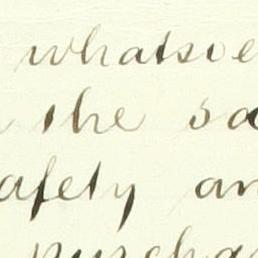 whatsoe
the sa
afety an
purcha